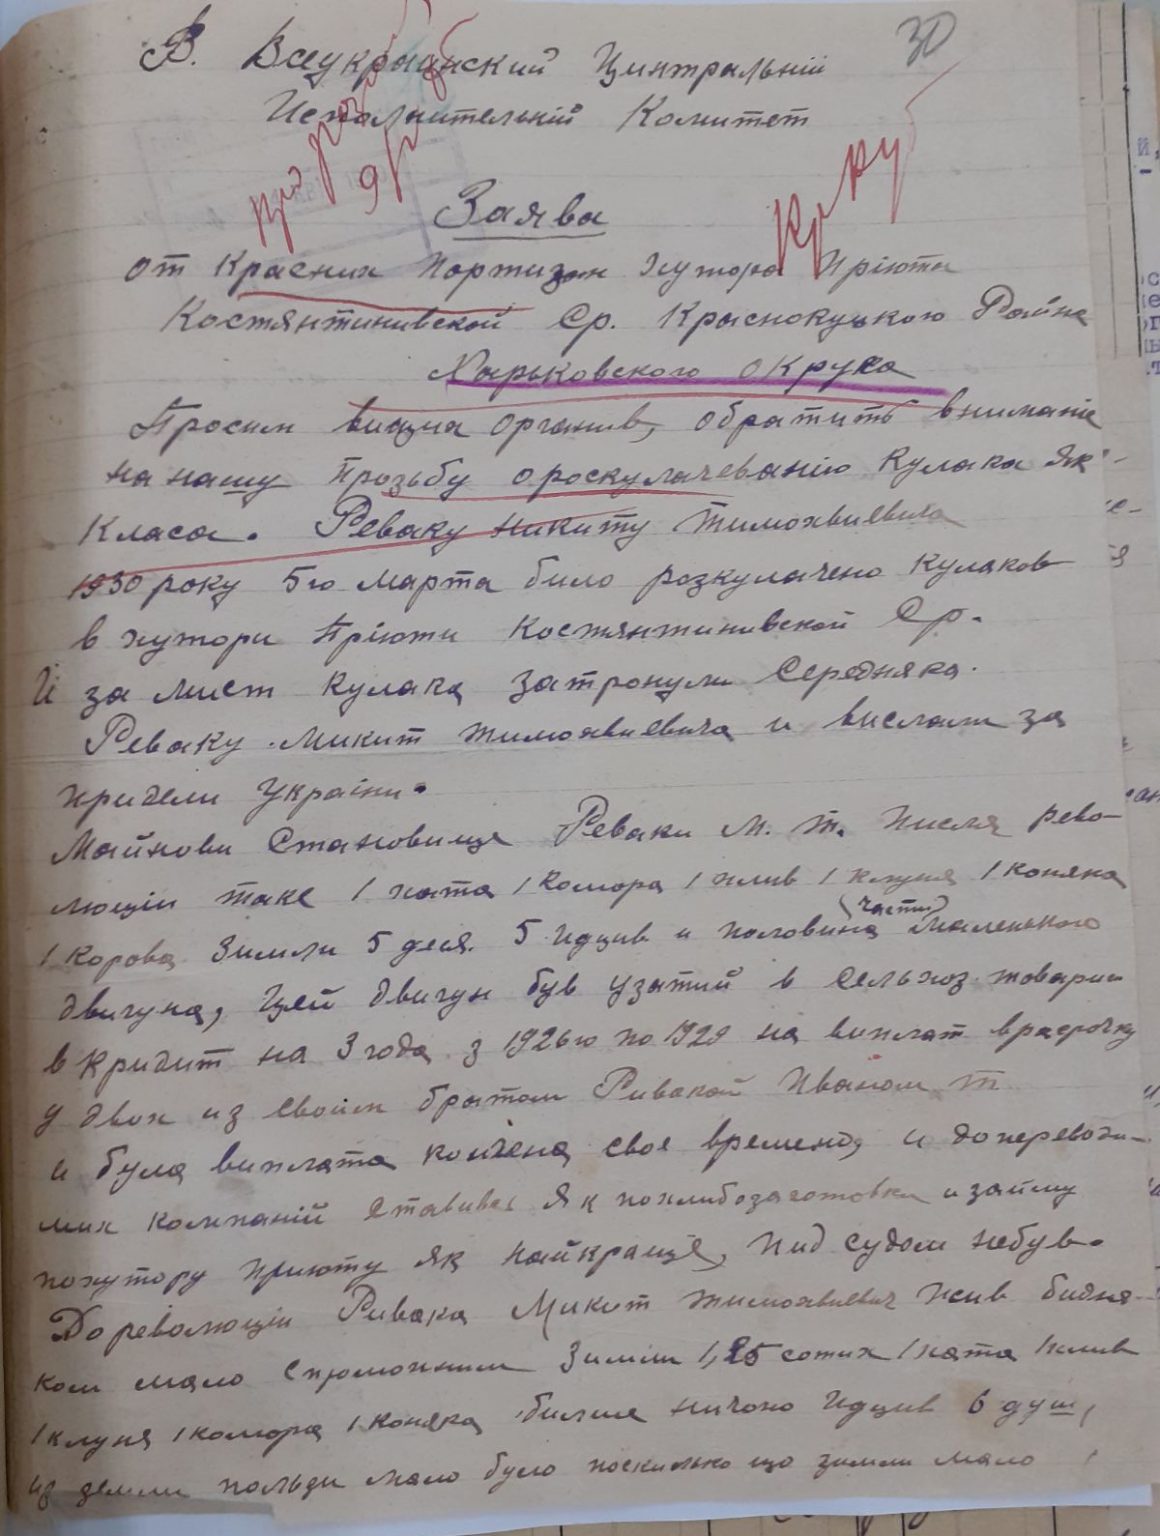 30
В. Всеукраинский Центральній
Исполнительній Комитет
Заява
от Красних Портизан хутора Пріюта
Костянтинивской Ср. Краснокуцкого Района
Харьковского округа
Просим вищих органив, обратить вниманіе
на нашу прозьбу о роскулачеванію кулака як
Класа. Реваку Никиту Тимохвиевича
1930 року 5го марта било розкулачено кулаков
в хутори Пріюти Костянтинивской Ср.
Й за мист кулака затронули Середняка.
Реваку Микит Тимохвиевича и вислали за
придели України.
Майнови Становище Реваки М. Т. писля рево-
люции таке 1 хата 1 комора 1 хлив 1 клуня 1 коняка
(части)
1 корова Зимли 5 деся. 5 идцив и половина маленького
двигуна, Цей двигун був узятий в сельхоз. товарис
в кридит на 3 года з 1926го по 1929 на виплат врасрочку
у двох из своїм братом Ривакой Иваном Т
и була виплата кончена свое времено, и допереводи-
мих компаній ставивсь як похлибозаготовки и займу
похутору Приюту як найкраще, пид судом небув.
До революции Ривака Микит Тимохвиевич жив бидня-
ком мало спроможним Зимли 1,25 сотих 1 хата 1 хлив
1 клуня 1 комора 1 коняка билше ничого идцив 6 душ,
из земли пользи мало було поскилько що зимли мало